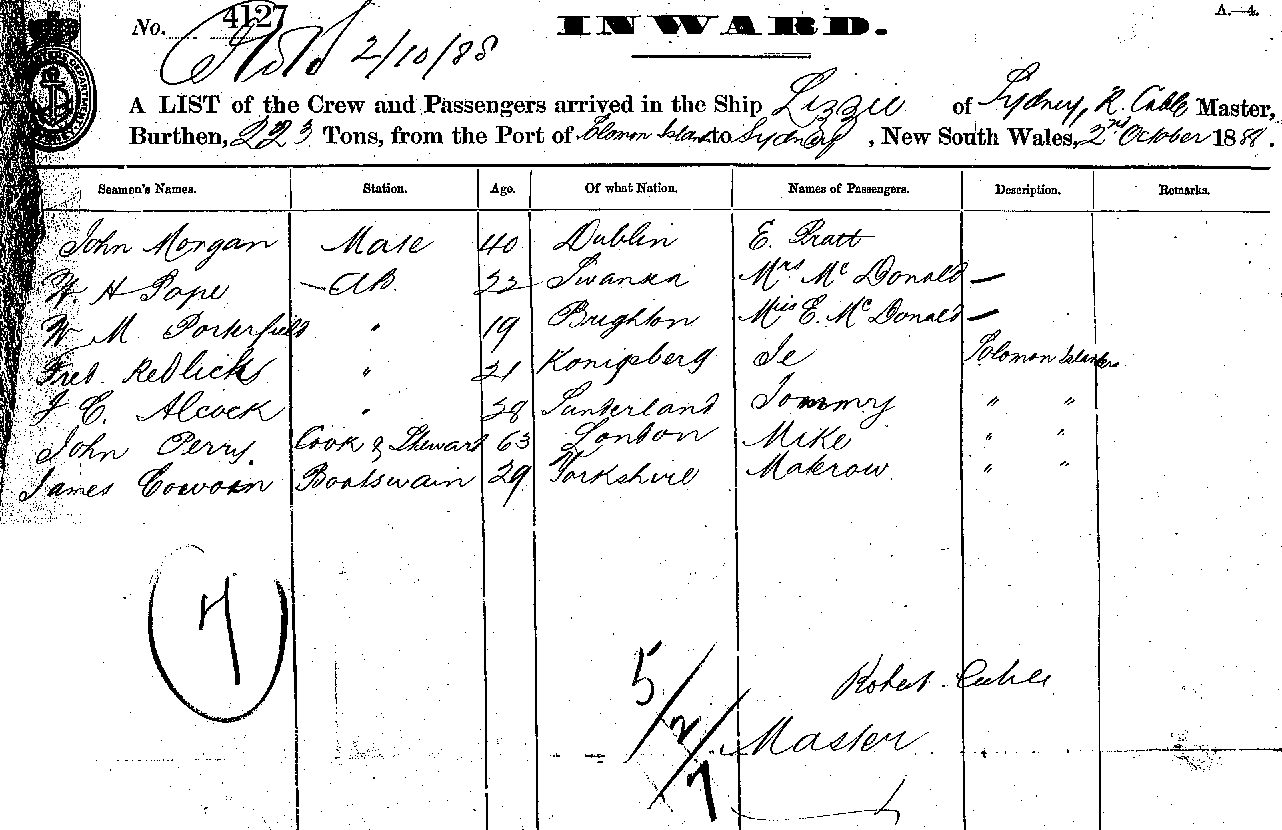 No. 4127 INWARD. A.—4.
2/10/88
A LIST of the Crew and Passengers arrived in the Ship Lizzie of Sydney, R. Cable Master,
Burthen, 223 Tons, from the Port of Solomon Islands to Sydney, New South Wales, 2nd October 1888.
Seamen's Names. Station. Age. Of what Nation. Names of Passengers. Description. Remarks.
John Morgan Mate 40 Dublin E. Pratt
W H Pope AB. 22 Swansea Mrs Mc Donald —
W M Porterfield " 19 Brighton Miss E. Mc Donald —
Fred. Redlick " 21 Konigsberg Je Solomon Islanders
J C. Alcock " 28 Sunderland Tommy " "
John Perry. Cook & Steward 63 London Mike " "
James Boatswain 29 Yorkshire Makrow " "
7
5/2/7
Robert Cable
Master